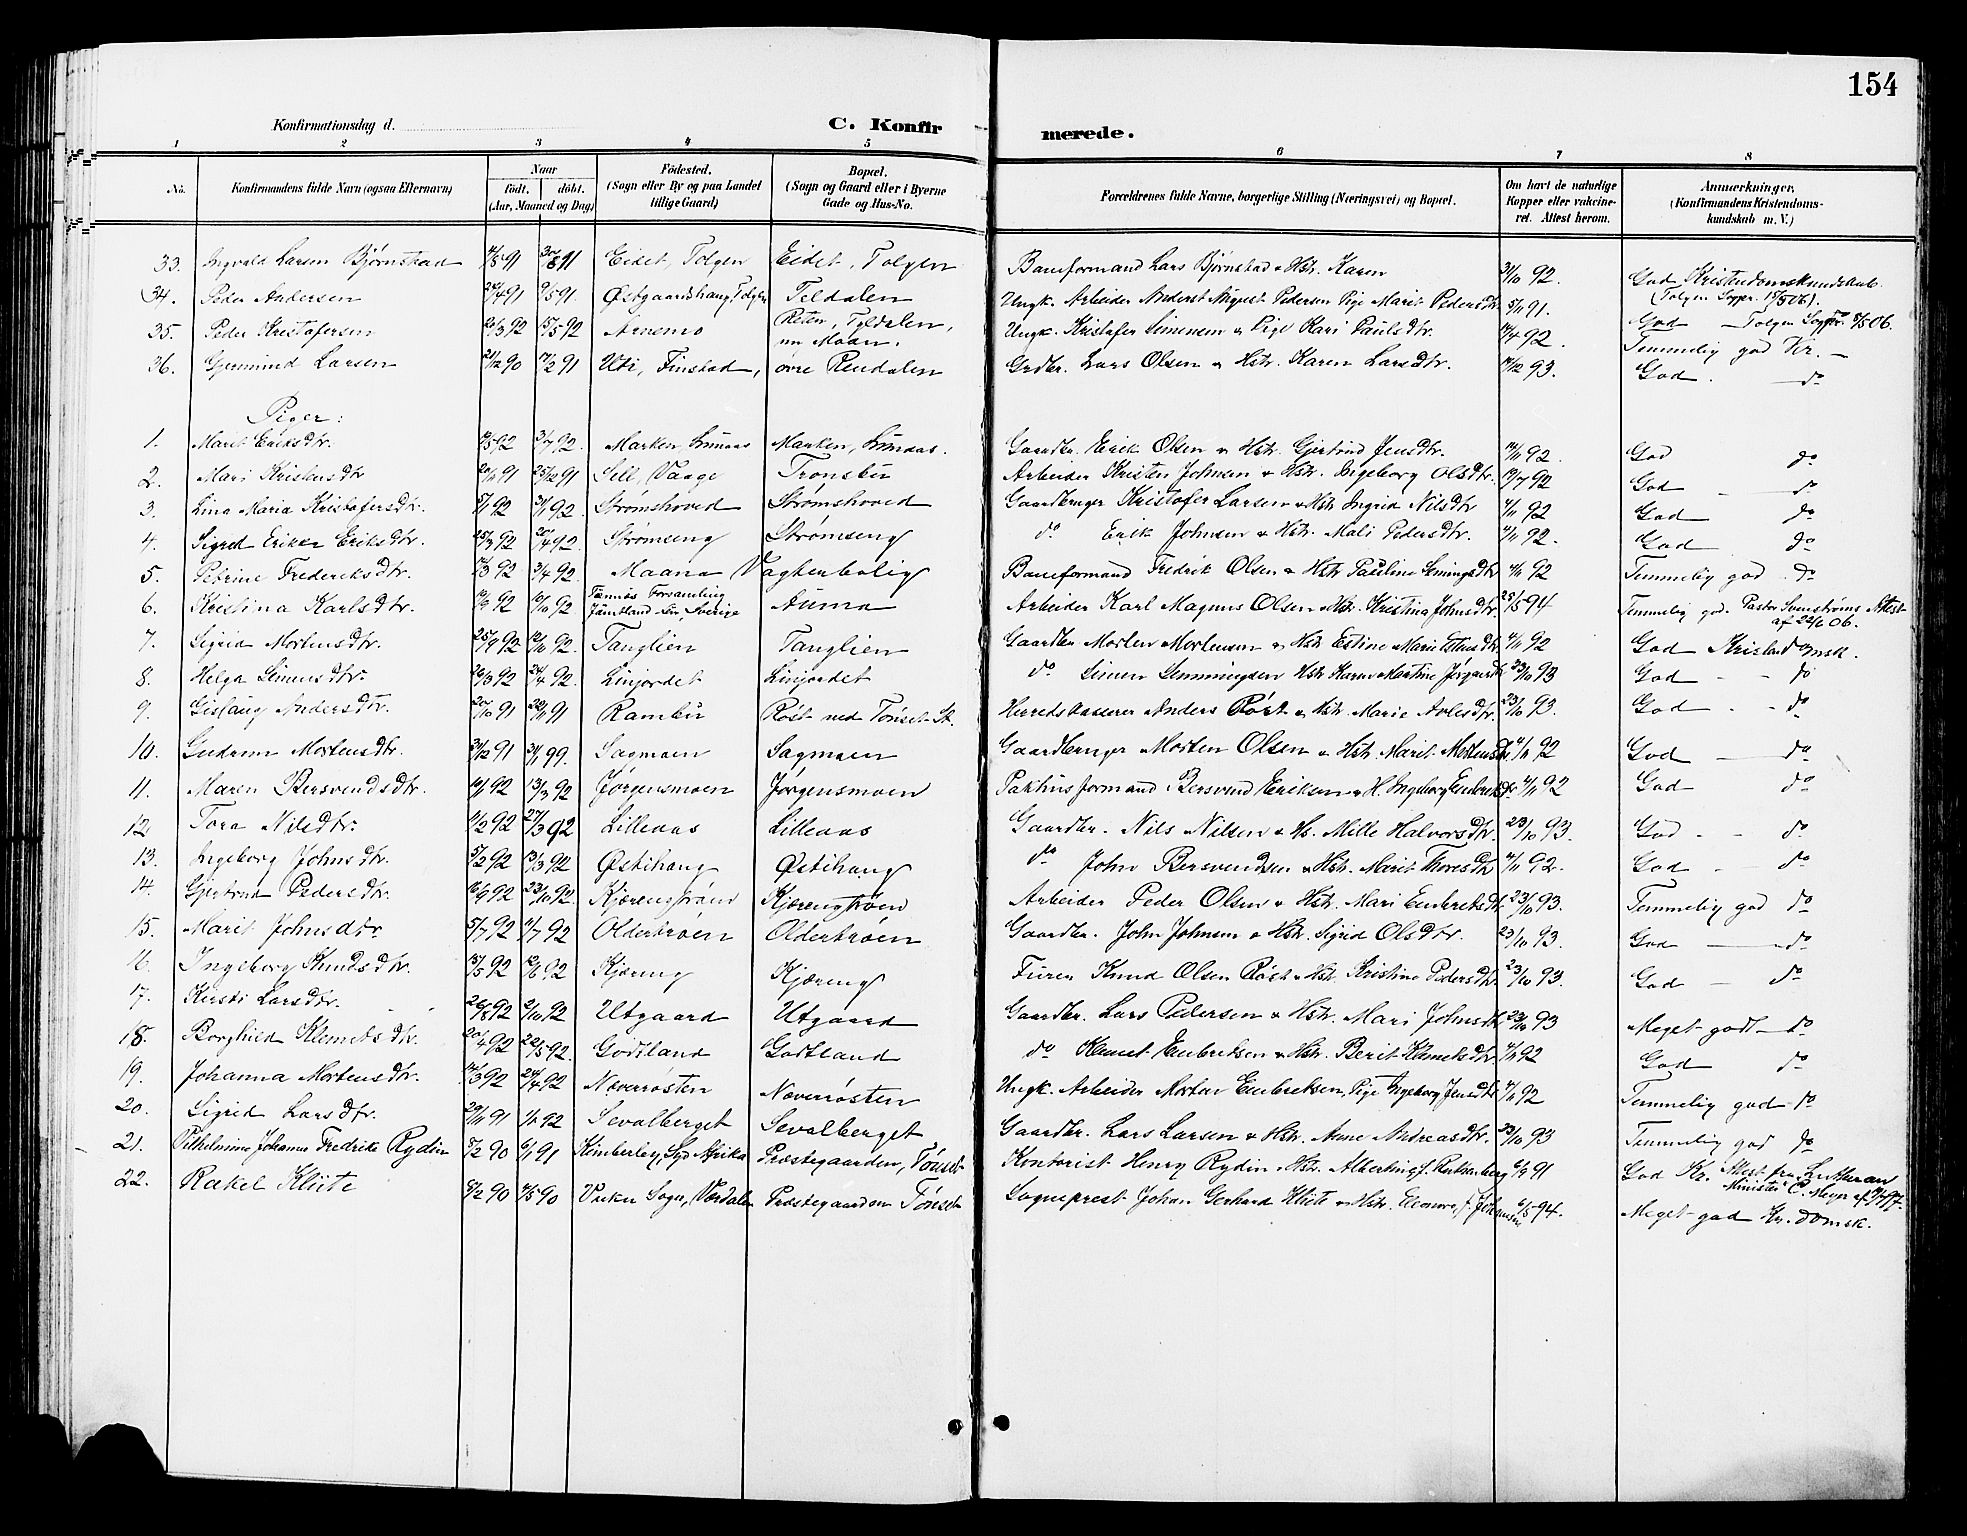 154
Konfirmationsdag d.
C. Konfir
merede.
1 2 3 4 5 6 7 8
No. Konfirmandens fulde Navn (ogsaa Efternavn) Naar födt. döbt. (Aar, Maaned og Dag) Födested. (Sogn eller By og paa Landet tillige Gaard) Bopæl. (Sogn og Gaard eller i Byerne Gade og Hus-No. Forældrenes fulde Navne, borgerlige Stilling (Næringsvei) og Bopæl. Om havt de naturlige Kopper eller vakcineret. Attest herom. Anmærkninger. (Konfirmandens Kristendomskundskab m. V.)
33. Ingvald Larsen Bjørnstad 91 30/8 91 Eidet, Tolgen Eidet, Tolgen Baneformand Lars Bjørnstad & Hstr. Karen 31/10 92. God Kristendomskundskab.
34. Peder Andersen 91 91. Østgaardshaug, Tolgen Teldalen Ungk. Arbeider Anderst August Pedersen Pige Marit Pedersdtr. 5/11 91. (Tolgen Sogpr. 06).
35. Peder Kristofersen 92 15/5 92 Arnemo Reten, Tyldalen, nu Moan. Ungk. Kristofer Simensen & Pige Kari Paulsdtr. 92. God — Tolgen Sogpr. 06.
36. Gjermund Larsen 21/12 90 91 Uti, Finstad, øvre Rendalen Grdbr. Lars Olsen & Hstr. Karen Larsdtr. 93. Temmelig god Kr. —
God. — do
Piger:
1. Marit Eriksdtr. 92 3/7 92. Marken, Marken, Gaardbr. Erik Olsen & Hstr. Gjertrud Jensdtr. 92. God do
2. Mari Kristensdtr 91 25/12 91 Sell, Vaage Tronsbu Arbeider Kristen Johnsen & Hstr. Ingeborg Olsdtr. 92 God — do
3. Lina Maria Kristofersdtr. 92 31/1 92. Strømshoved Strømshoved Gaardbruger Kristofer Larsen & Hstr Ingrid Nilsdtr 4/11 92 God do
4. Sigrid Erikke Eriksdtr. 25/3 92 92. Strømseng Strømseng do Erik Johnsen & Hstr. Mali Pedersdtr. 4/11 92. God do
5. Petrine Frederiksdtr. 92 3/4 92. Maana Vagterbolig Baneformand Fredrik Olsen & Hstr Pauline 4/11 92 Temmelig god do
6. Kristina Karlsdtr. 92 92. Tännäs Forsamling Jämtland Sverige Auma Arbeider Karl Magnus Olsen & Hstr. Kristina Johnsdtr. 25/5 94 Temmelig god. Pastor Svenströms Attest af 22/6 06.
7. Sigrid Mortensdtr. 25/9 92 92. Tanglien Tanglien Gaardbr. Morten Mortensen & Hstr Estine Marie 4/11 92 God Kristendomsk.
8. Helga Simensdtr. 92 24/4 92. Linjordet Linjordet do Simen Hstr Karen Martine 23/10 93 God - - do
9. Gislaug Andersdtr. 20/10 91 91 Rambu Røst ved Tønset St. Herredskasserer Anders Røst & Hstr. Marie 23/10 93. God - - do
10. Gudrun Mortensdtr. 31/12 91 31/1 99. Sagmoen Sagmoen Gaardbruger Morten Olsen & Hstr. Marit Mortensdtr 4/11 92 God — do
11. Maren Bersvendsdtr. 92 13/3 92 Jørgensmoen Jørgensmoen Pakhusformand Bersvend Eriksen & H. Ingeborg 4/11 92 God do
12 Tora Nilsdtr. 92 27/3 92 Lilleaas Lilleaas Gaardbr. Nils Nilsen & Hs. Mille Halvorsdtr. 23/10 93. God - - do
13. Ingeborg Johnsdtr. 5/2 92 13/3 92 Østihaug Østihaug do John Bersvendsen & Hstr. Marit Toresdtr 4/11 92. God - do
14. Gjertrud Pedersdtr. 92 23/10 92. Arbeider Peder Olsen & Hstr. Mari 23/10 93. Temmelig god do
15. Marit Johnsdtr 5/7 92 92 Oldertrøen Oldertrøen Gaardbr. John Johnsen & Hstr. Sigrid Olsdtr. 23/10 93. God — do
16. Ingeborg Knudsdtr. 92 92 Kjæreng Kjæreng Knud Olsen Røst & Hstr. Kristine Pedersdtr 23/10 93. God — do
17. Kirsti Larsdtr. 92 2/10 92 Utgaard Utgaard Gaardbr. Lars Pedersen & Hstr. Mari Johnsdtr 23/10 93 Meget godt do
18. Borghild Klemetsdtr. 92 22/5 92. Godtland Godtland do Klemet Embretsen & Hstr. Berit Klemetsdtr. 4/11 92 God do
19. Johanna Mortensdtr. 92 24/4 92 Næverrøsten Næverrøsten Ungk. Arbeider Morten Embretsen, Pige Ingeborg Jensdtr 4/11 92 Temmelig god do
20. Sigrid Larsdtr. 91 92 Sevalberget Sevalberget Gaardbr. Lars Larsen & Hstr. Anne Andreasdtr. 23/10 93 Temmelig god do
21. Vilhelmine Johanne Fredrikke Rydin 90 6/1 91 Kimberley, Syd Afrika Præstegaarden, Tønset Kontorist Henry Rydin Hstr. 91 God Kr. Attest fra Lutheran Minister C. Meyer af
22. Rakel Kluite 90 90 Vuku Sogn, Værdalen Præstegaarden Tønset Sogneprest Johan Gerhard & Hstr. Eleonore f. Johansen 94. Meget god Kr. domsk.